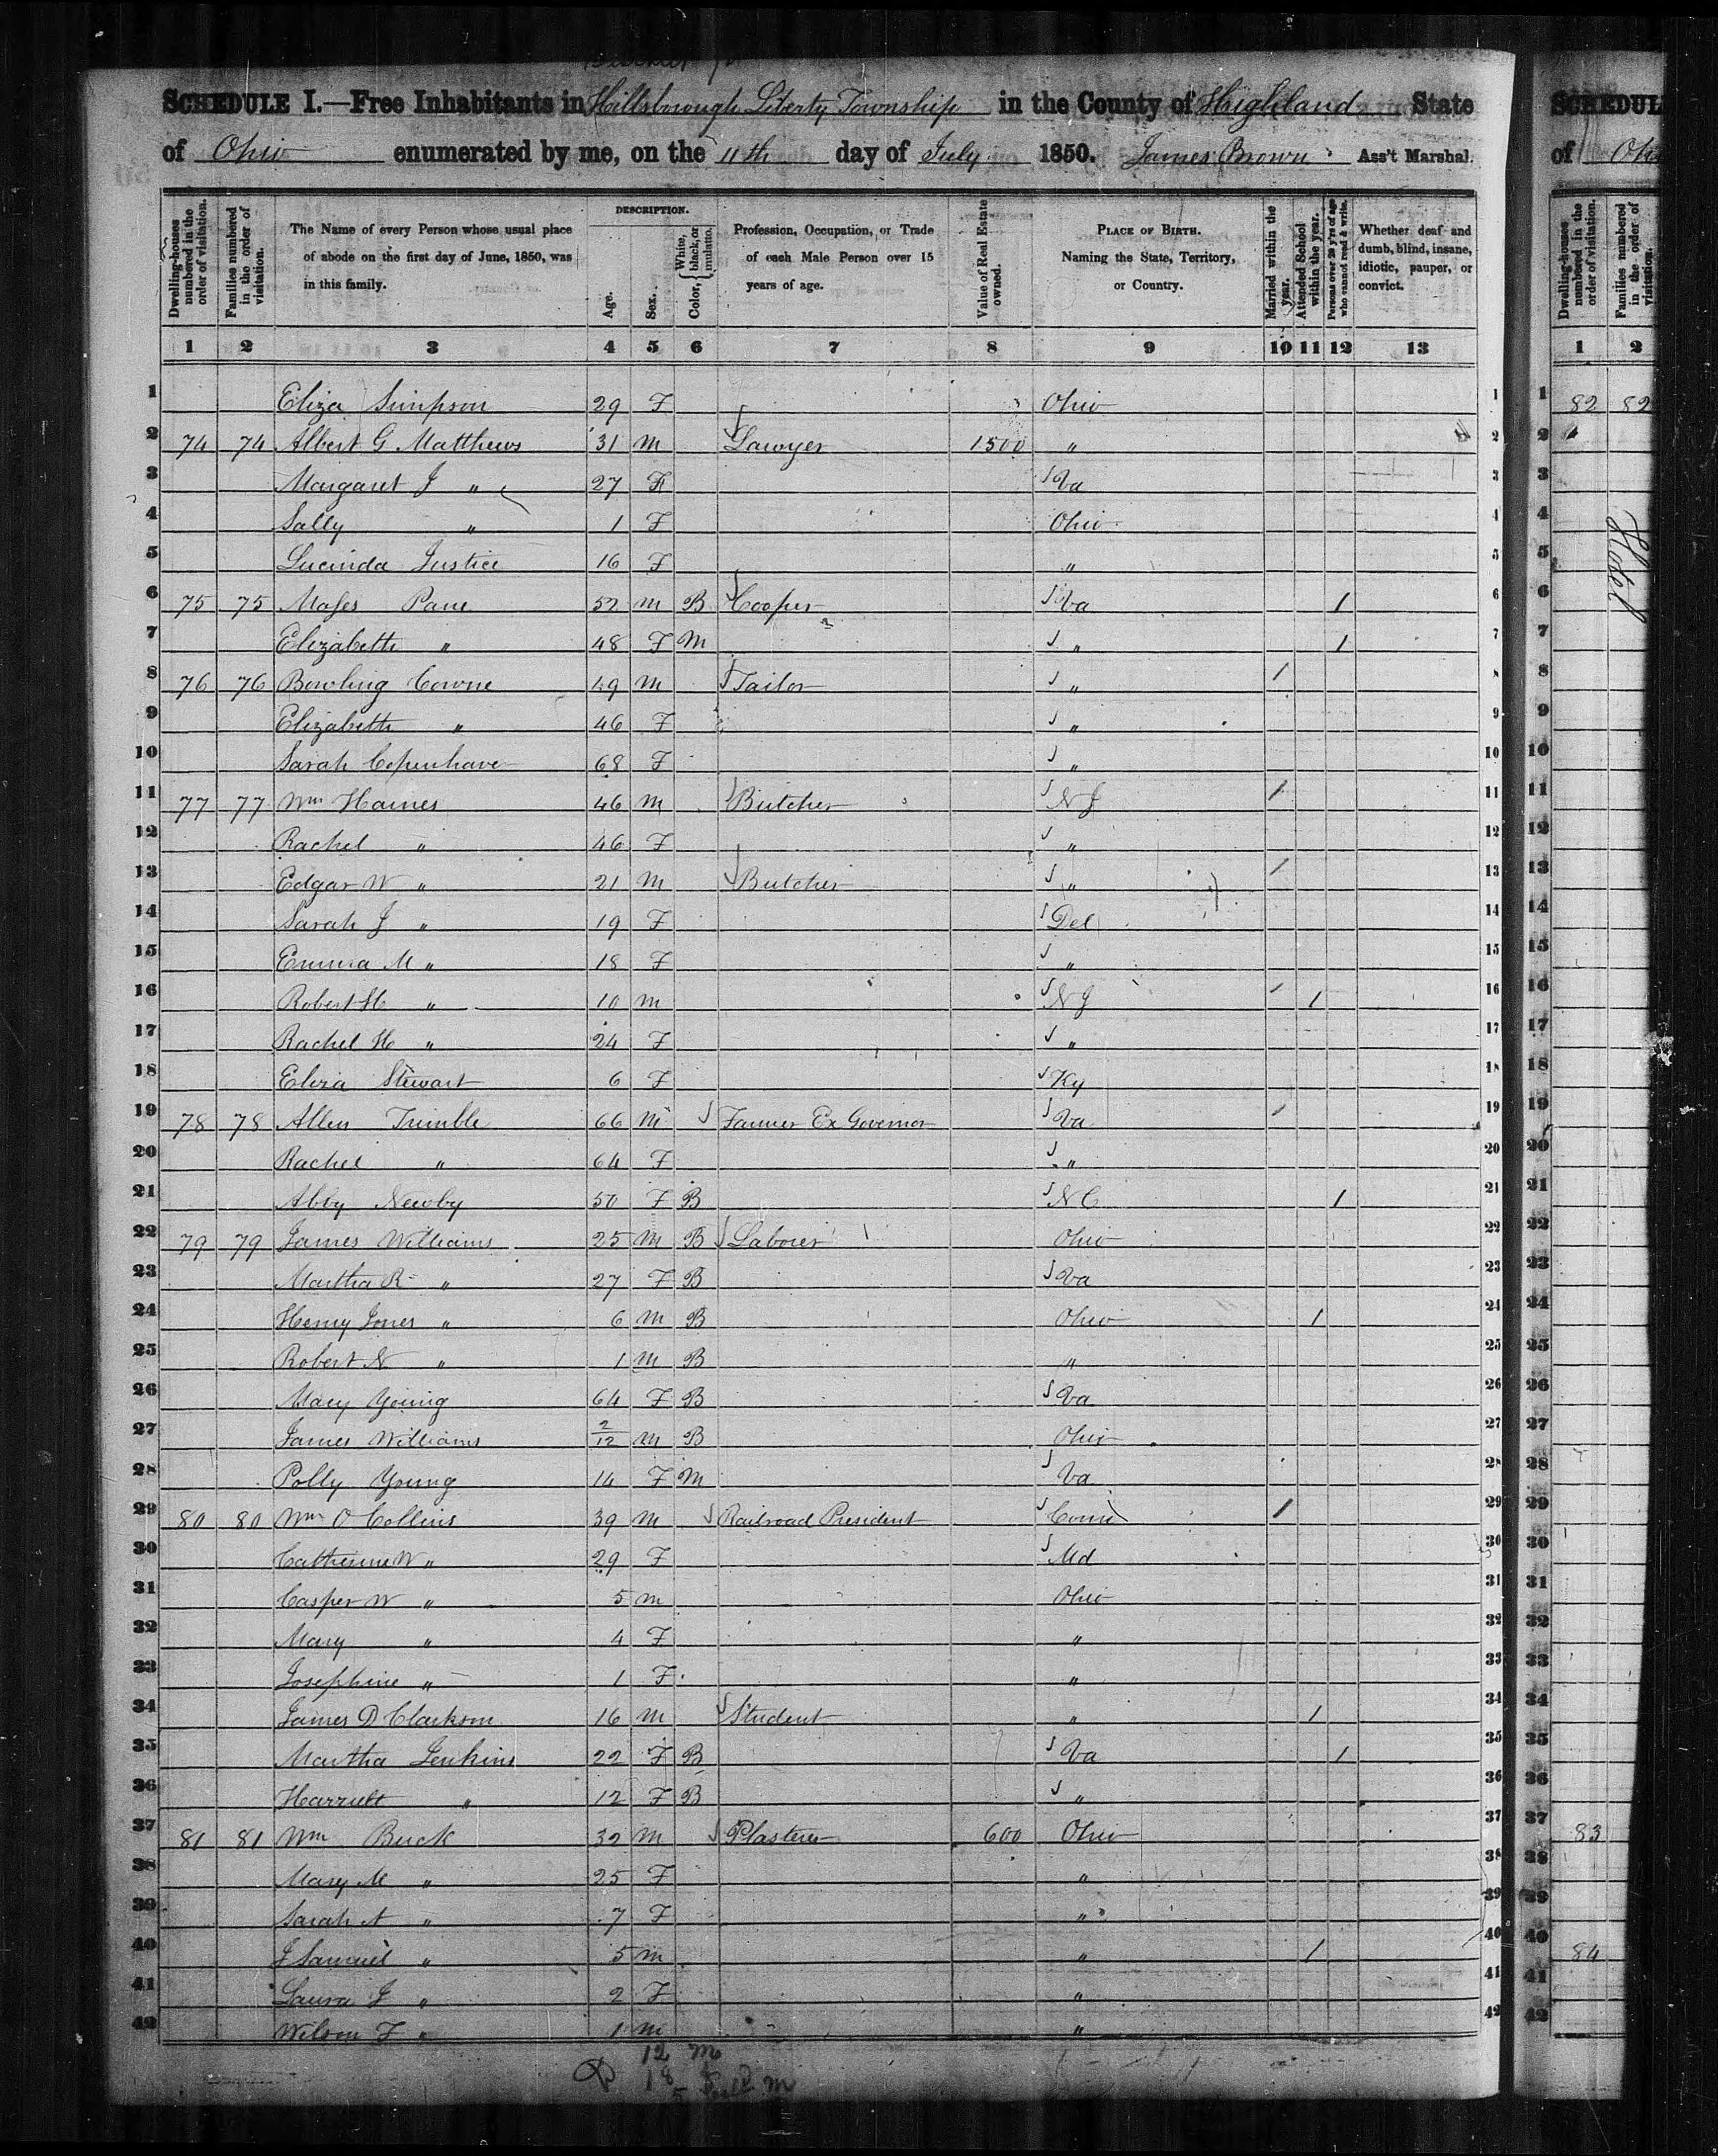 SCHEDULE I.—Free Inhabitants in Hillsborough Liberty Township in the County of Highland State
of Ohio enumerated by me, on the 11th day of July 1850. James Brown Ass't Marshal.
Dwelling-houses numbered in the order of visitation.
Families numbered in the order of visitation.
The Name of every Person whose usual place of abode on the first day of June, 1850, was in this family.
DESCRIPTION.
Age.
Sex.
Color, { White, black, or mulatto.
Profession, Occupation, or Trade of each Male Person over 15 years of age.
Value of Real Estate owned.
PLACE OF BIRTH. Naming the State, Territory, or Country.
Married within the year.
Attended School within the year.
Persons over 20 y'rs of age who cannot read & write.
Whether deaf and dumb, blind, insane, idiotic, pauper, or convict.
1 2 3 4 5 6 7 8 9 10 11 12 13
1 Eliza Simpson 29 F Ohio 1
2 74 74 Albert G Matthews 31 M Lawyer 1500 " 2
3 Margaret J " 27 F Va 3
4 Sally " 1 F Ohio 4
5 Lucinda Justice 16 F " 5
6 75 75 Moses 52 M B Cooper Va 1 6
7 Elizabeth " 48 F M " 1 7
8 76 76 Bowling Cowne 49 M Tailor " / 8
9 Elizabeth " 46 F " 9
10 Sarah Copenhaver 68 F " 10
11 77 77 Wm Haines 46 M Butcher N J / 11
12 Rachel " 46 F " 12
13 Edgar W " 21 M Butcher " / 13
14 Sarah J " 19 F Del 14
15 Emma M " 18 F " 15
16 Robert H " 10 M N J / 1 16
17 Rachel H " 24 F " 17
18 Eliza Stewart 6 F Ky 18
19 78 78 Allen Trimble 66 M Farmer Ex Governor Va / 19
20 Rachel " 64 F " 20
21 Abby Newby 50 F B N C 1 21
22 79 79 James Williams 25 M B Laborer Ohio 22
23 Martha R " 27 F B Va 23
24 Henry Jones " 6 M B Ohio 1 24
25 Robert N " 1 M B " 25
26 Mary Young 64 F B Va 26
27 James Williams 2/12 M B Ohio 27
28 Polly Young 14 F M Va 28
29 80 80 Wm O Collins 39 M Railroad President Conn / 29
30 Catherine W " 29 F Md 30
31 Casper W " 5 M Ohio 31
32 Mary " 4 F " 32
33 Josephine " 1 F " 33
34 James D Clarkson 16 M Student " 1 34
35 Martha Jenkins 22 F B Va 1 35
36 Harriett " 12 F B " 36
37 81 81 Wm Buck 32 M Plasterer 600 Ohio 37
38 Mary M " 25 F " 38
39 Sarah A " 7 F " 39
40 J Samuel " 5 M " 1 40
41 Laura J " 2 F " 41
42 Wilson F " 1 M " 42
12 M
18
SCHEDUL
of Oh
Dwelling-houses numbered in the order of visitation.
Families numbered in the order of visitation.
1 2
1 82 82
2
3
4
5
Hotel
6
7
8
9
10
11
12
13
14
15
16
17
18
19
20
21
22
23
24
25
26
27
28
29
30
31
32
33
34
35
36
37 83
38
39
40 84
41
42